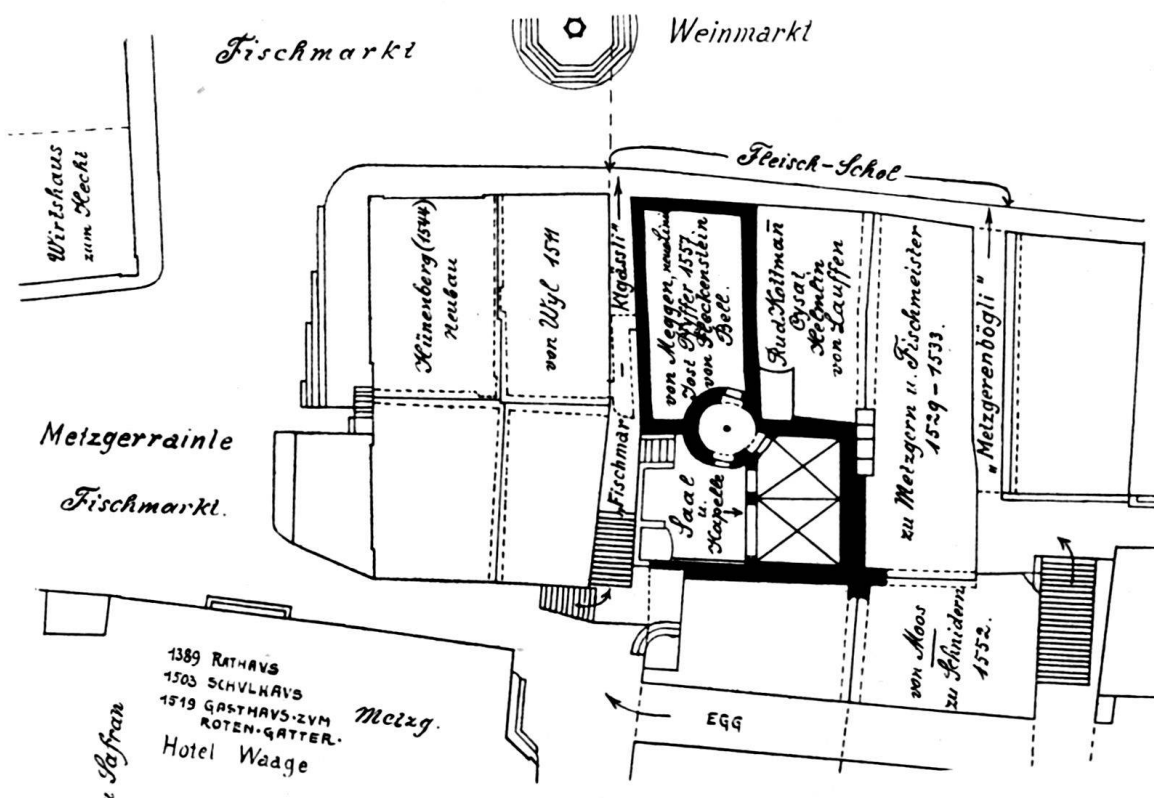 Fischmarkt
Weinmarkt
Wirtshaus
zum Hecht
Fleisch-Schol
Hünenberg (1544)
Neubau
von Wyl 1511
"Fischmar - ktgässli"
von Meggen, neue Linie
Jost Pfyffer 1557
von Fleckenstein
Bell.
Rud. Kottmañ
Cysat
Helmlin
von Lauffen
zu Metzgern u. Fischmeister
1529-1533.
"Metzgerenbögli"
Metzgerrainle
Fischmarkt.
Saal
u.
Kapelle
von Moos
zu Schnidern
1552.
1389 RATHAVS
1503 SCHVLHAVS
1519 GASTHAVS·ZVM
ROTEN·GATTER.
Metzg.
Hotel Waage
Safran
EGG